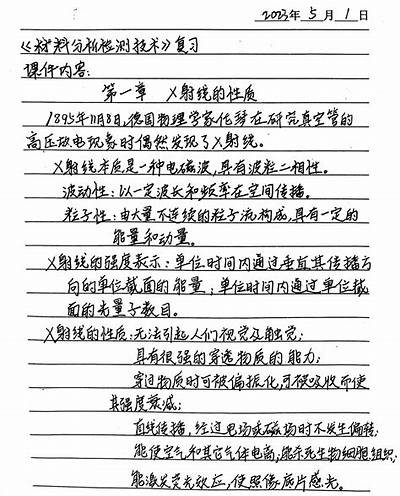 2023年 5 月 1 日
《材料分析检测技术》复习
课件内容:
第一章 X射线的性质
1895年11月8日,德国物理学家伦琴在研究真空管的
高压放电现象时偶然发现了X射线。
X射线本质是一种电磁波,具有波粒二相性。
波动性:以一定波长和频率在空间传播。
粒子性:由大量不连续的粒子流构成,具有一定的
能量和动量。
X射线的强度表示:单位时间内通过垂直其传播方
向的单位截面的能量;单位时间内通过单位截
面的光量子数目。
X射线的性质:无法引起人们视觉及触觉;
具有很强的穿透物质的能力;
穿过物质时可被偏振化,可被吸收而使
其强度衰减;
直线传播,经过电场或磁场时不发生偏转;
能使空气和其它气体电离;能杀死生物细胞组织;
能激发荧光效应,使照像底片感光。